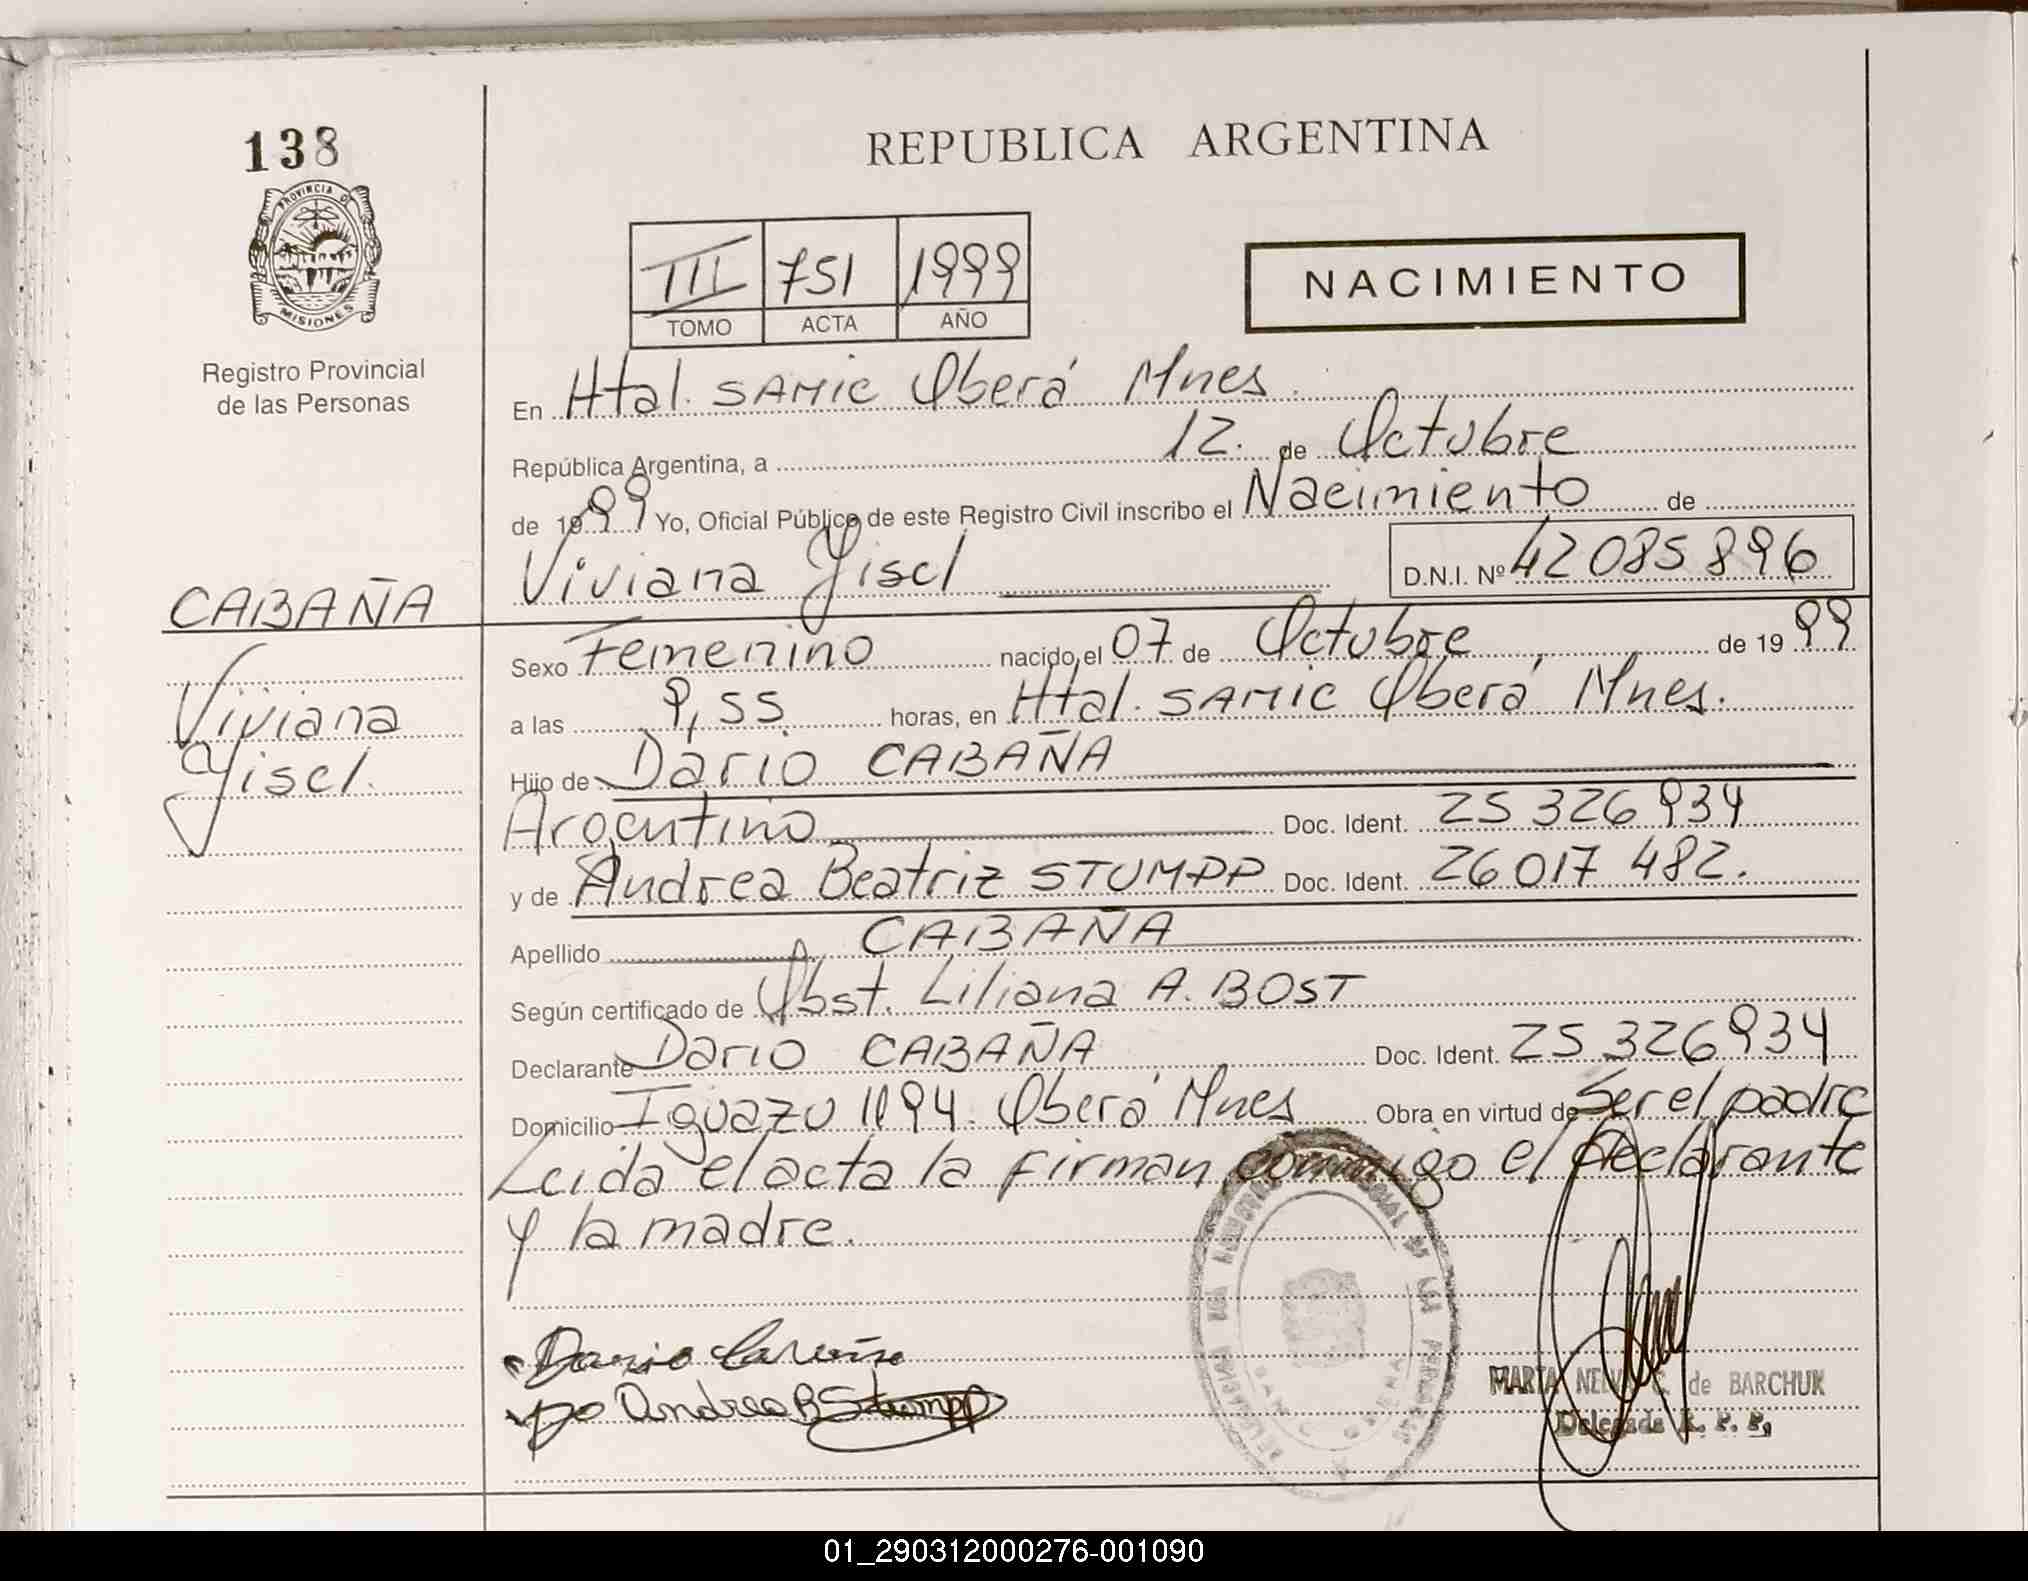 138
PROVINCIA DE
MISIONES
Registro Provincial
de las Personas
REPUBLICA ARGENTINA
III 751 1999
TOMO ACTA AÑO
NACIMIENTO
En Htal. SAMIC Oberá Mnes.
República Argentina, a 12. de Octubre
de 1999 Yo, Oficial Público de este Registro Civil inscribo el Nacimiento de
Viviana Yisel D.N.I. Nº 42085896
CABAÑA
Viviana
Yisel.
Sexo Femenino nacido el 07 de Octubre de 1999
a las 9,55 horas, en Htal. SAMIC Oberá Mnes.
Hijo de Dario CABAÑA
Argentino Doc. Ident. 25 326 934
y de Andrea Beatriz STUMPP Doc. Ident. 26 017 482.
Apellido CABAÑA
Según certificado de Obst. Liliana A. BOST
Declarante Dario CABAÑA Doc. Ident. 25 326 934
Domicilio Iguazu 1194. Oberá Mnes Obra en virtud de Ser el padre
Leida el acta la firman conmigo el declarante
y la madre.
Dario
Andrea B Stumpp
MARTA NELVA C. de BARCHUK
Delegada R. P. P.
01_290312000276-001090